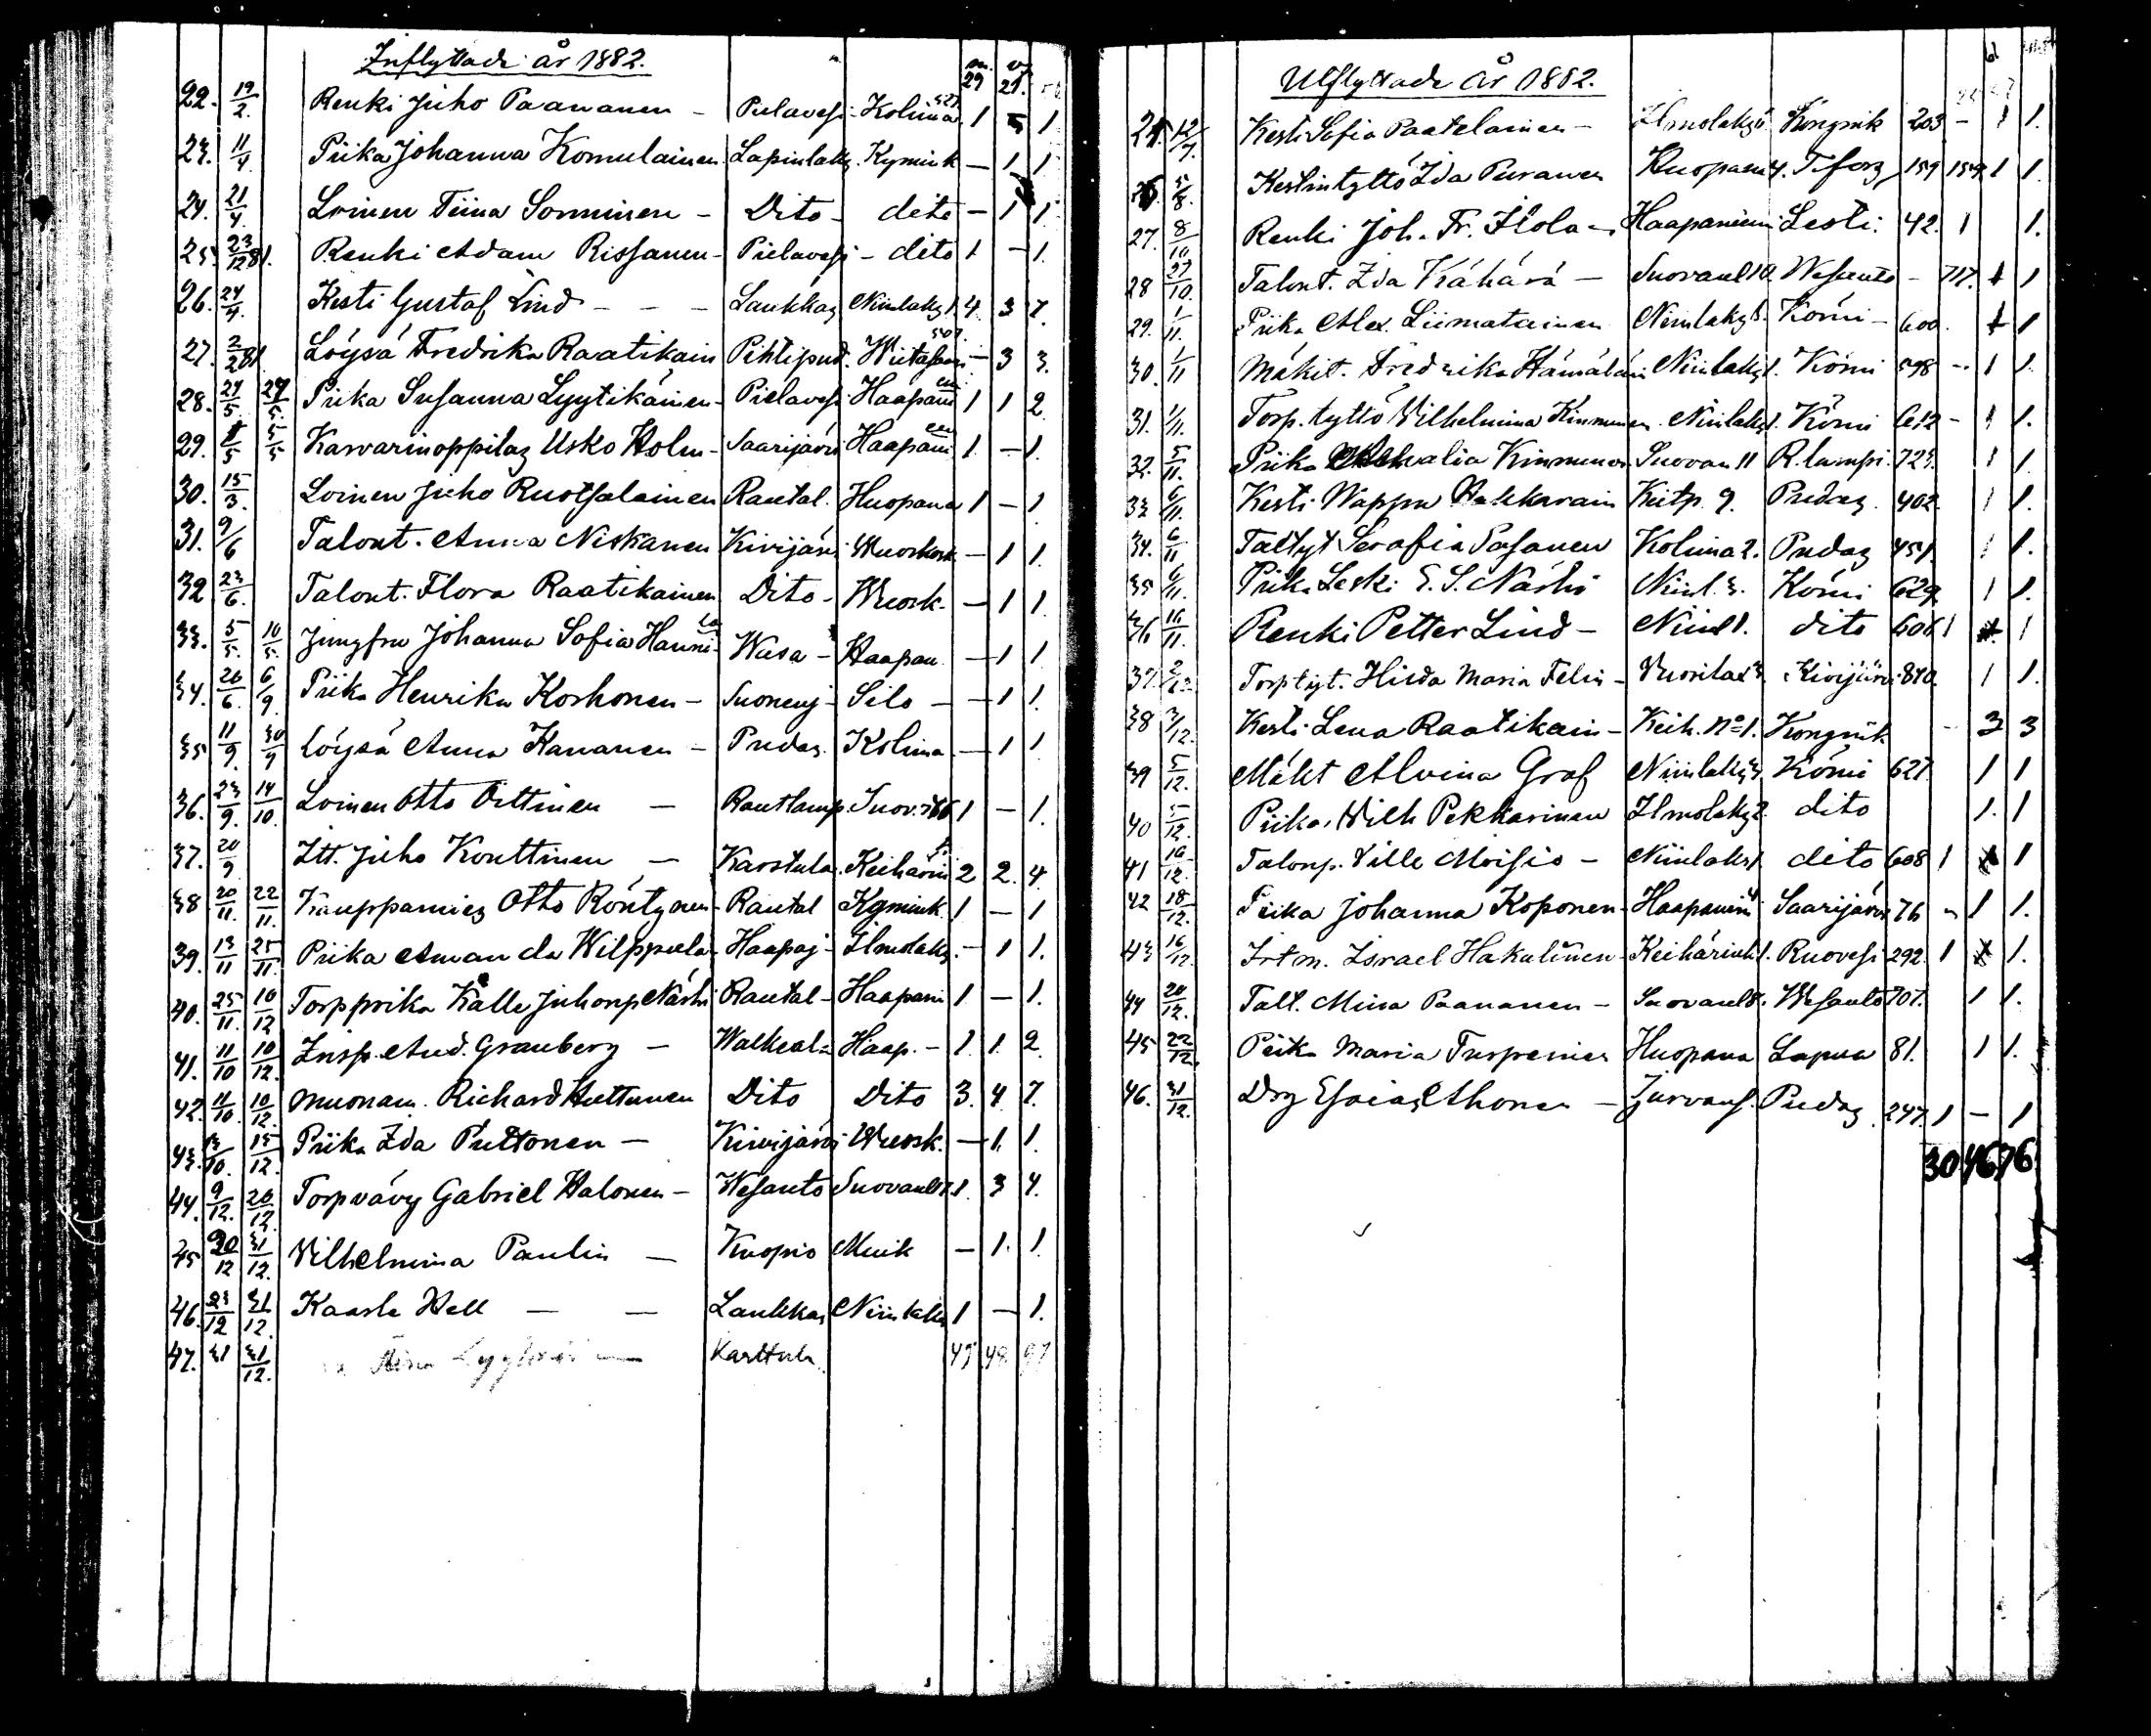 Inflyttade år 1882.
m. q.
29 21.
22. 19/2. Renki Juho Paananen - Pielavesi - Kolima 527 1 1
23. 11/4. Piika Johanna Komulainen Lapinlaks. Kymink - 1 1
24. 21/4. Loinen Tiina Sonninen - Dito - dito - 1 1
25. 23/12 81. Renki Adam Rissanen - Pielavesi - dito 1 - 1.
26. 24/4. Kesti Gustaf Lind - - - Laukkas Niinilaks 1. 4. 3 7.
27. 2/2 81. Löysä Fredrika Raatikain Pihtipud. Wiitasaari - 3 3.
28. 27/5. 27/5. Piika Susanna Lyytikäinen - Pielaves. Haapani 1 1 2.
29. 5/5 Karvarinoppilas Usko Holm - Saarijärvi Haapani 1. - 1.
30. 15/3. Loinen Juho Ruotsalainen Rautal. Huopana 1 - 1
31. 9/6 Talont. Anna Niskanen Kivijärvi - 1 1.
32 23/6. Talont. Flora Raatikainen Dito - Wuosk. - 1 1.
33. 5/5. 10/5. Jungfru Johanna Sofia Hanni Wasa - Haapan. - 1 1
34. 26/6. 6/9. Piika Henrika Korhonen - Suonenj - Silo - - 1 1.
35 11/9. 30/9 Löysä Anna Kananen - Pudas. Kolima - 1 1
36. 23/9. 14/10. Loinen Otto Oittinen - Rautlamp. Suov. 1 - 1.
37. 20/9 Itt. Juho Konttinen - Karstula. Keihärin 2 2. 4.
38 20/11. 22/11. Kauppamies Otto Röntynen - Rautal Kymink. 1 - 1
39. 13/11 25/11. Piika Amanda Wilppula - Haapaj - Ilmolaks. - 1 1.
40. 25/11. 10/12 Torpprika Kalle Juhonp Närhi Rautal - Haapani 1 - 1.
41. 11/10 10/12. Insp. And. Granberg - Walkeal - Haap. - 1. 1. 2.
42. 11/10. 10/12. Muonam. Richard Huttunen Dito Dito 3. 4. 7.
43. 13/10. 15/12. Piika Ida Puttonen - Kivijärvi Wuosk. - 1. 1.
44. 9/12. 20/12. Torpvävy Gabriel Halonen - Wesanto Suovanl 1. 3 4.
45 20/12 31/12. Vilhelmina Paulin - Kuopio Muik - 1. 1.
46. 23/12 31/12. Kaarle Hell - - Laukkas Niinilaks 1 - 1.
47. 31 31/12. - Karttula 49. 48. 97
Utflyttade år 1882.
25. 12/7. Kesti Sofia Paatelainen - Ilmolaks Kongink 203 - 1 1.
26. 5/8. Kestintyttö Ida Puranen Huopana 4. T:fors 159 159. 1 1.
27. 8/10 Renki Joh. Fr. Ilola - Haapaniemi Lesti. 42. 1 1.
28 27/10. Talont. Ida Kähärä - Suovanl 10. Wesanto - 717. 1 1
29. 1/11. Piika Alex. Liimatainen Niinilaks 8. Könni - 600. 1 1
30. 1/11 Mäkit. Fredrika Hämäläin Niinilaks 1. Könni 598 - 1 1.
31. 1/11. Torp. tyttö Vilhelmina Kinnunen. Niinilaks 1. Könni 612 - 1 1.
32. 5/11. Piika Kinnunen Suovan 11 R.lampi. 723. 1 1.
33 6/11. Kesti Wappu Hakkarain Keitp. 9. Pudas. 402. 1 1.
34. 6/11 Taltyt Serafia Sasanen Kolima 2. Pudas 451. 1 1.
35 6/11. Piik. Leski E. S. Närhi Niinl. 3. Könni 629. 1 1.
36 16/11. Renki Petter Lind - Niinl 1. dito 606 1 1
37. Torptyt. Hilda Maria Felin - Vuorilax 3. Kivijärvi 840. 1 1.
38 3/12. Kesti Lena Raatikain - Keih. No 1. Kongink - 3 3
39 5/12. Mäkt Alvina Graf Niinilaks 3. Könni 627. 1 1
40 5/12. Piika Wilh Pekkarinen Ilmolaks 2. dito 1. 1
41 16/12. Talonp. Ville Moisio - Niinilaks 1. dito 608 1 1
42 18/12. Piika Johanna Koponen - Haapaniemi Saarijärvi 76 - 1 1.
43 16/12. Itm. Israel Hakulinen - Keihärink 1. Ruovesi 292. 1 1.
44 20/12. Talt. Mina Paananen - Suovanl 8. Wesanto 707. 1 1.
45 22/12. Piika Maria Turpeinen Huopana Lapua 81. 1 1.
46. 31/12. Drg Esaias Ahonen - Jurvans. Pudas 247. 1 - 1
30 46 76